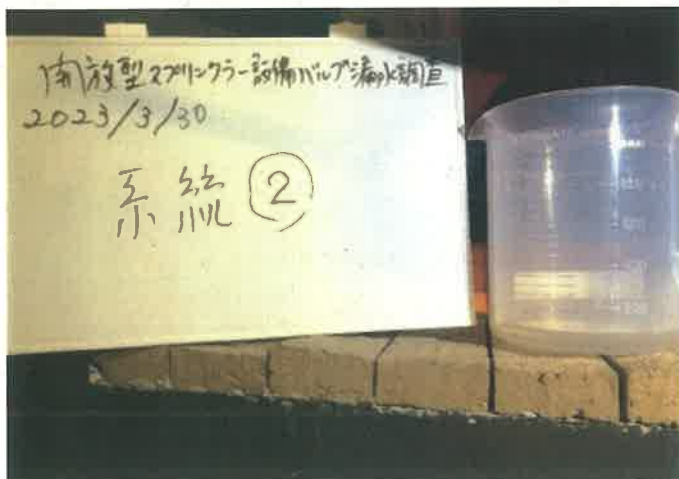 開放型スプリンクラー設備バルブ漏水調査
2023/3/30
系統②